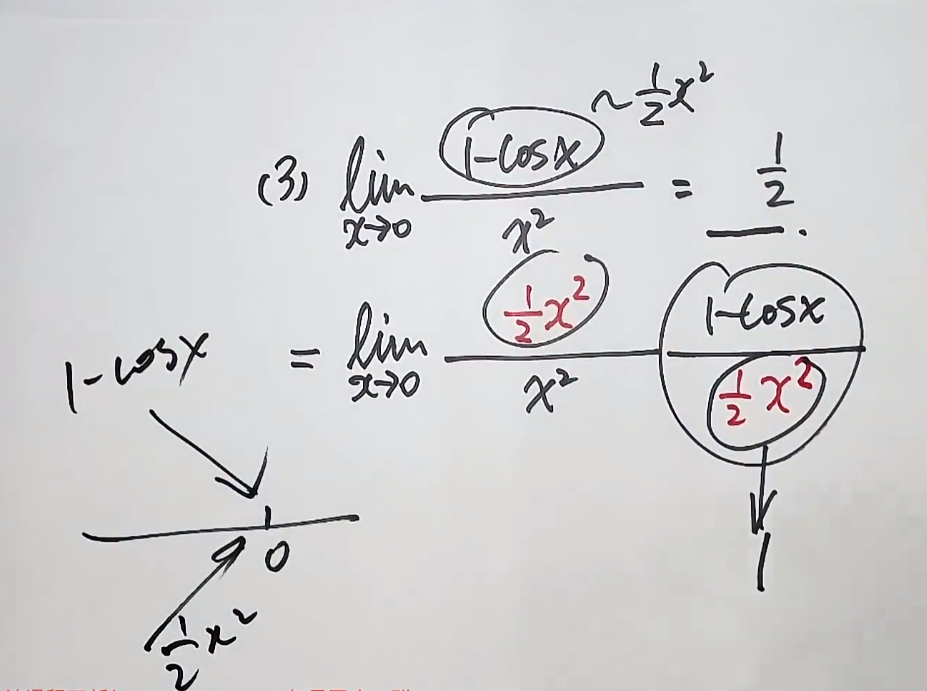 (3) lim x→0 (1-cosx)/x² = 1/2 .
~ 1/2 x²
= lim x→0 (1/2 x²)/x² (1-cosx)/(1/2 x²)
1
1-cosx
0
1/2 x²